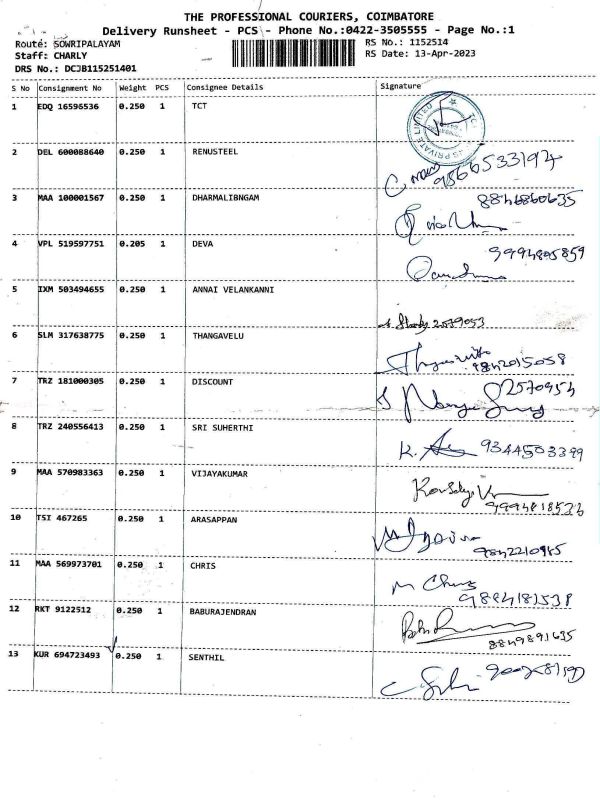 THE PROFESSIONAL COURIERS, COIMBATORE
Delivery Runsheet - PCS - Phone No.:0422-3505555 - Page No.:1
Route: SOWRIPALAYAM
RS No.: 1152514
Staff: CHARLY
RS Date: 13-Apr-2023
DRS No.: DCJB115251401
S No Consignment No Weight PCS Consignee Details Signature
1 EDQ 16596536 0.250 1 TCT
2 DEL 600088640 0.250 1 RENUSTEEL
9866533194
3 MAA 100001567 0.250 1 DHARMALIBNGAM 8846860635
4 VPL 519597751 0.205 1 DEVA
9994805859
5 IXM 503494655 0.250 1 ANNAI VELANKANNI
2579053
6 SLM 317638775 0.250 1 THANGAVELU
9842015058
7 TRZ 181000305 0.250 1 DISCOUNT 2570954
8 TRZ 240556413 0.250 1 SRI SUHERTHI
K. 9344503399
9 MAA 570983363 0.250 1 VIJAYAKUMAR
10 TSI 467265 0.250 1 ARASAPPAN
9842210985
11 MAA 569973701 0.250 1 CHRIS
9884181538
12 RKT 9122512 0.250 1 BABURAJENDRAN
8849891635
13 KUR 694723493 0.250 1 SENTHIL